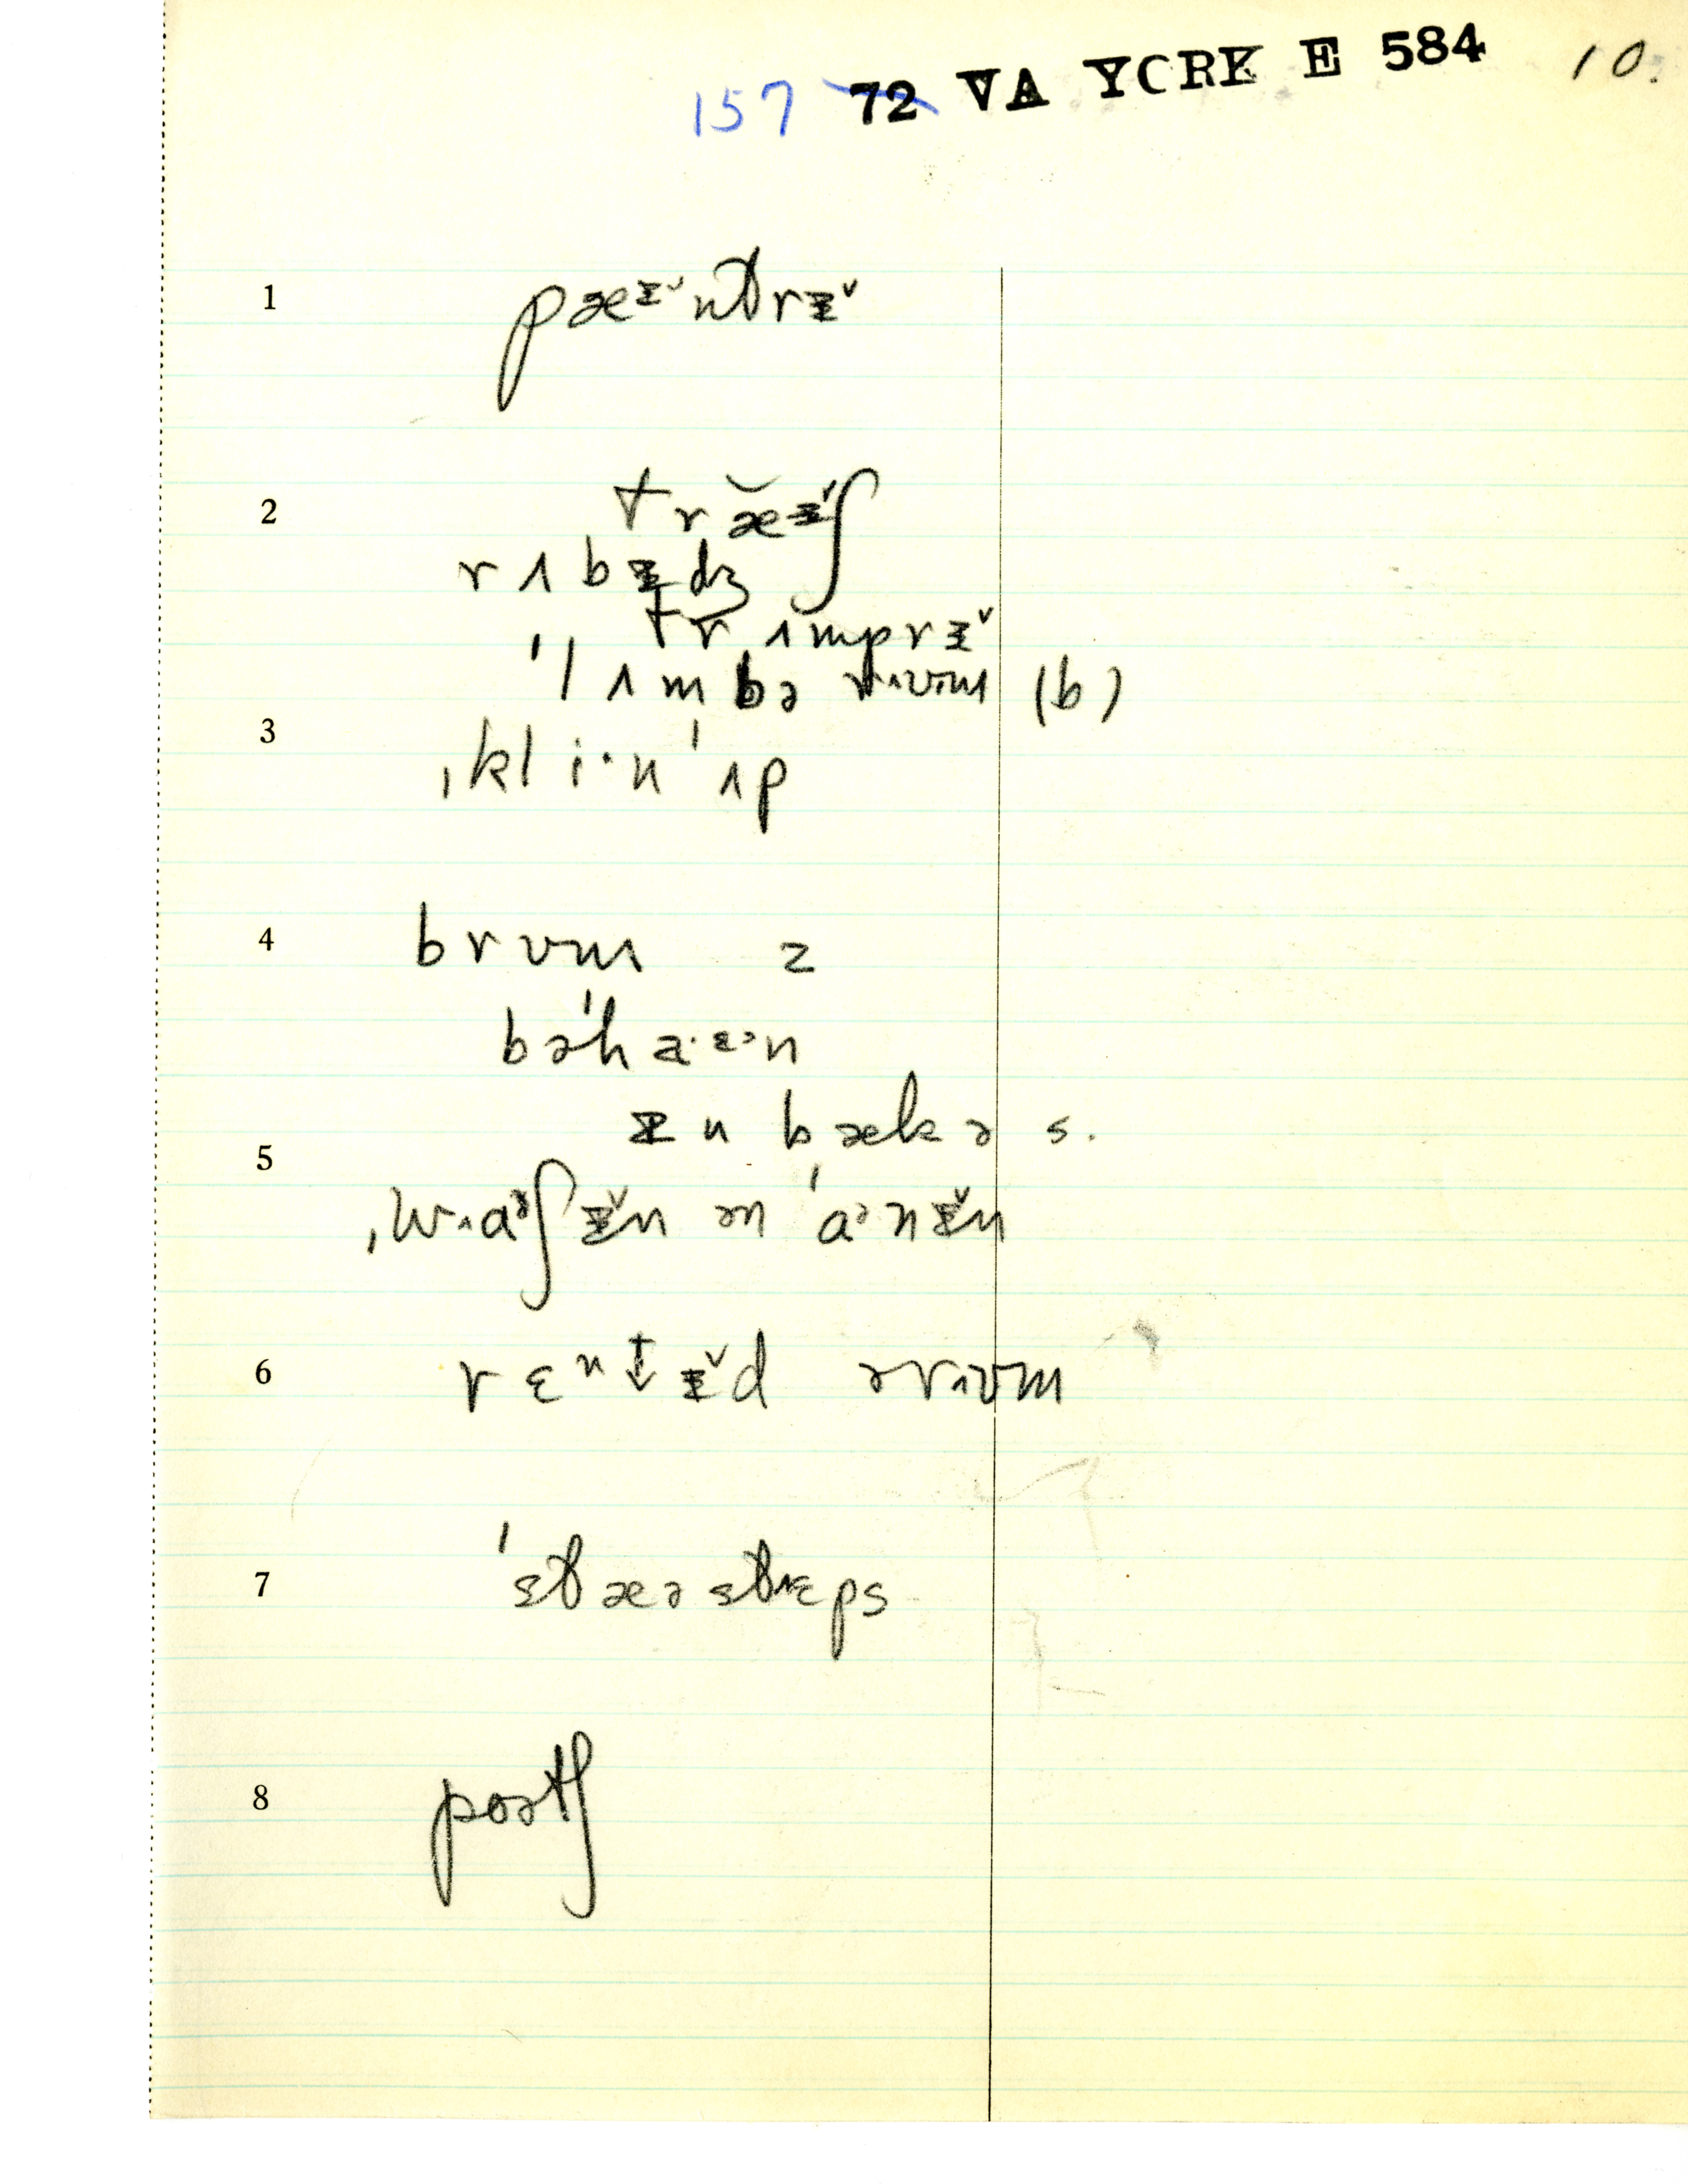 157 72 VA YORK E 584 10.
1 pæɪ̌ntrɪ̌
2 træ̆ɪ̌ʃ
rʌbɪdʒ
trʌmprɪ̌
ˈlʌmbə rʌʊm (b)
3 ˌkli·nˈʌp
4 brʊm z
bəˈha·ɛən
ɪn bækə s.
5 ˌwɑəʃɪ̌n mˈaənɪ̌n
6 rɛntɪ̌d ərʌʊm
7 ˈstæəstɛps
8 poətʃ